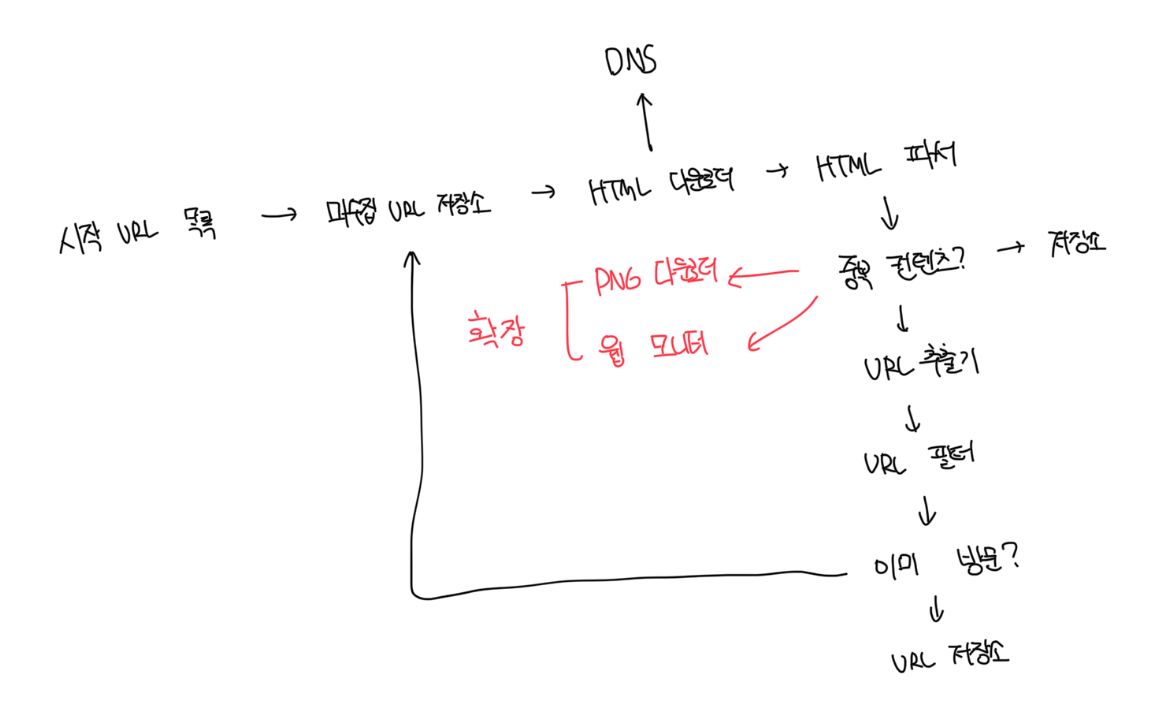 DNS
시작 URL 목록
미수집 URL 저장소
HTML 다운로더
HTML 파서
중복 컨텐츠?
저장소
확장
PNG 다운로더
웹 모니터
URL 추출기
URL 필터
이미 방문?
URL 저장소